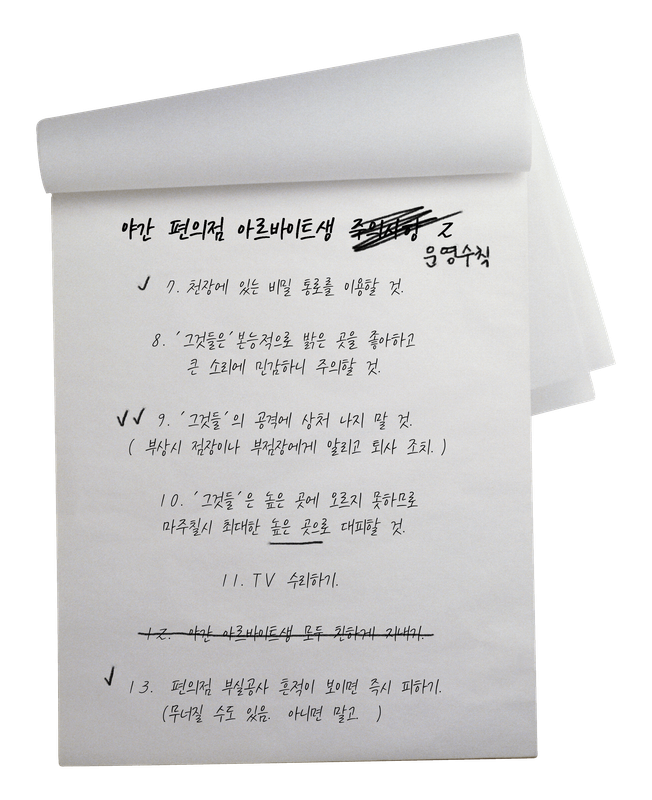 야간 편의점 아르바이트생 주의사항 2
운영수칙
✓ 7. 천장에 있는 비밀 통로를 이용할 것.
8. '그것들은' 본능적으로 밝은 곳을 좋아하고
큰 소리에 민감하니 주의할 것.
✓✓ 9. '그것들'의 공격에 상처 나지 말 것.
( 부상시 점장이나 부점장에게 알리고 퇴사 조치. )
10. '그것들'은 높은 곳에 오르지 못하므로
마주칠시 최대한 높은 곳으로 대피할 것.
11. TV 수리하기.
12. 야간 아르바이트생 모두 친하게 지내기.
✓ 13. 편의점 부실공사 흔적이 보이면 즉시 피하기.
(무너질 수도 있음. 아니면 말고. )